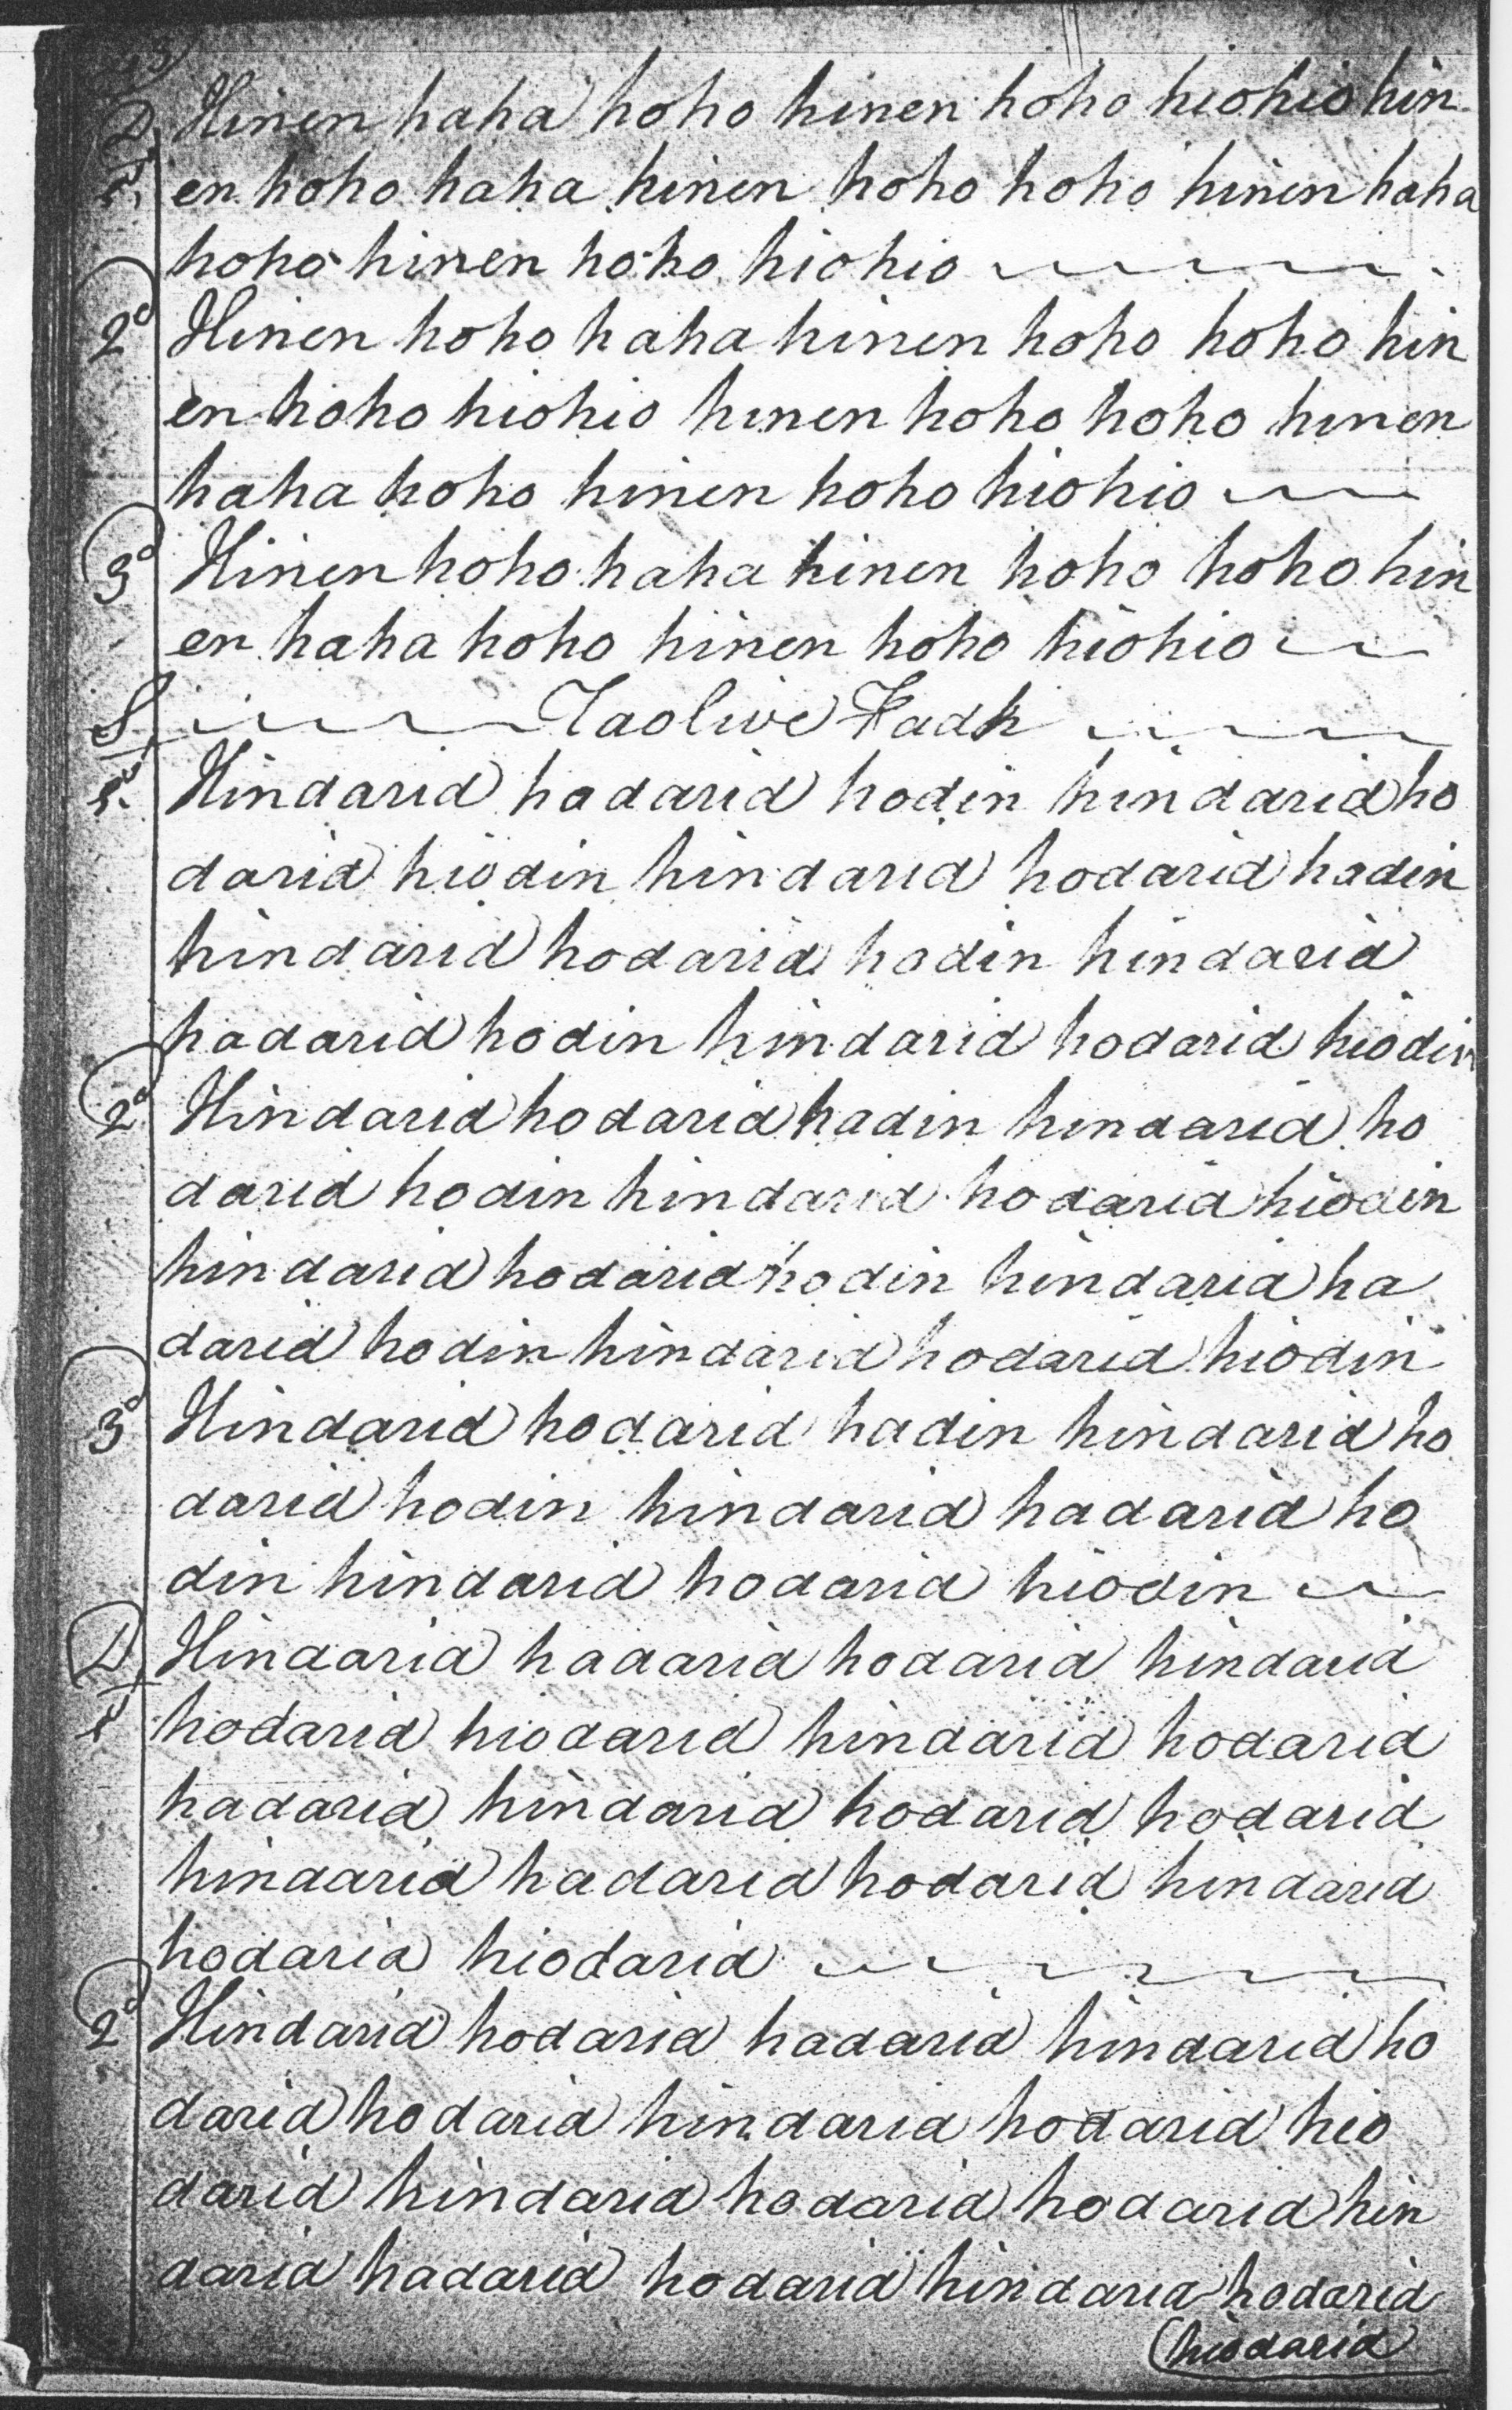 D Hinen haha hoho hinen hoho hiohio hin
1 en hoho haha hinen hoho hoho hinen haha
hoho hinen hoho hiohio
2d Hinen hoho haha hinen hoho hoho hin
en hoho hiohio hinen hoho hoho hinen
haha hoho hinen hoho hiohio
3d Hinen hoho haha hinen hoho hoho hin
en haha hoho hinen hoho hiohio
S Taolive Fadh
1. Hindarid hadarid hodin hindarid ho
darid hiodin hindarid hodarid hadin
hindarid hodarid hodin hindarid
hadarid hodin hindarid hodarid hiodin
2d Hindarid hodarid hadin hindarid ho
darid hodin hindarid hodarid hiodin
hindarid hodarid hodin hindarid ha
darid hodin hindarid hodarid hiodin
3d Hindarid hodarid hadin hindarid ho
darid hodin hindarid hadarid ho
din hindarid hodarid hiodin
D Hindarid hadarid hodarid hindarid
1 hodarid hiodarid hindarid hodarid
hadarid hindarid hodarid hodarid
hindarid hadarid hodarid hindarid
hodarid hiodarid
2d Hindarid hodarid hadarid hindarid ho
darid hodarid hindarid hodarid hio
darid hindarid hodarid hodarid hin
darid hadarid hodarid hindarid hodarid
hiodarid